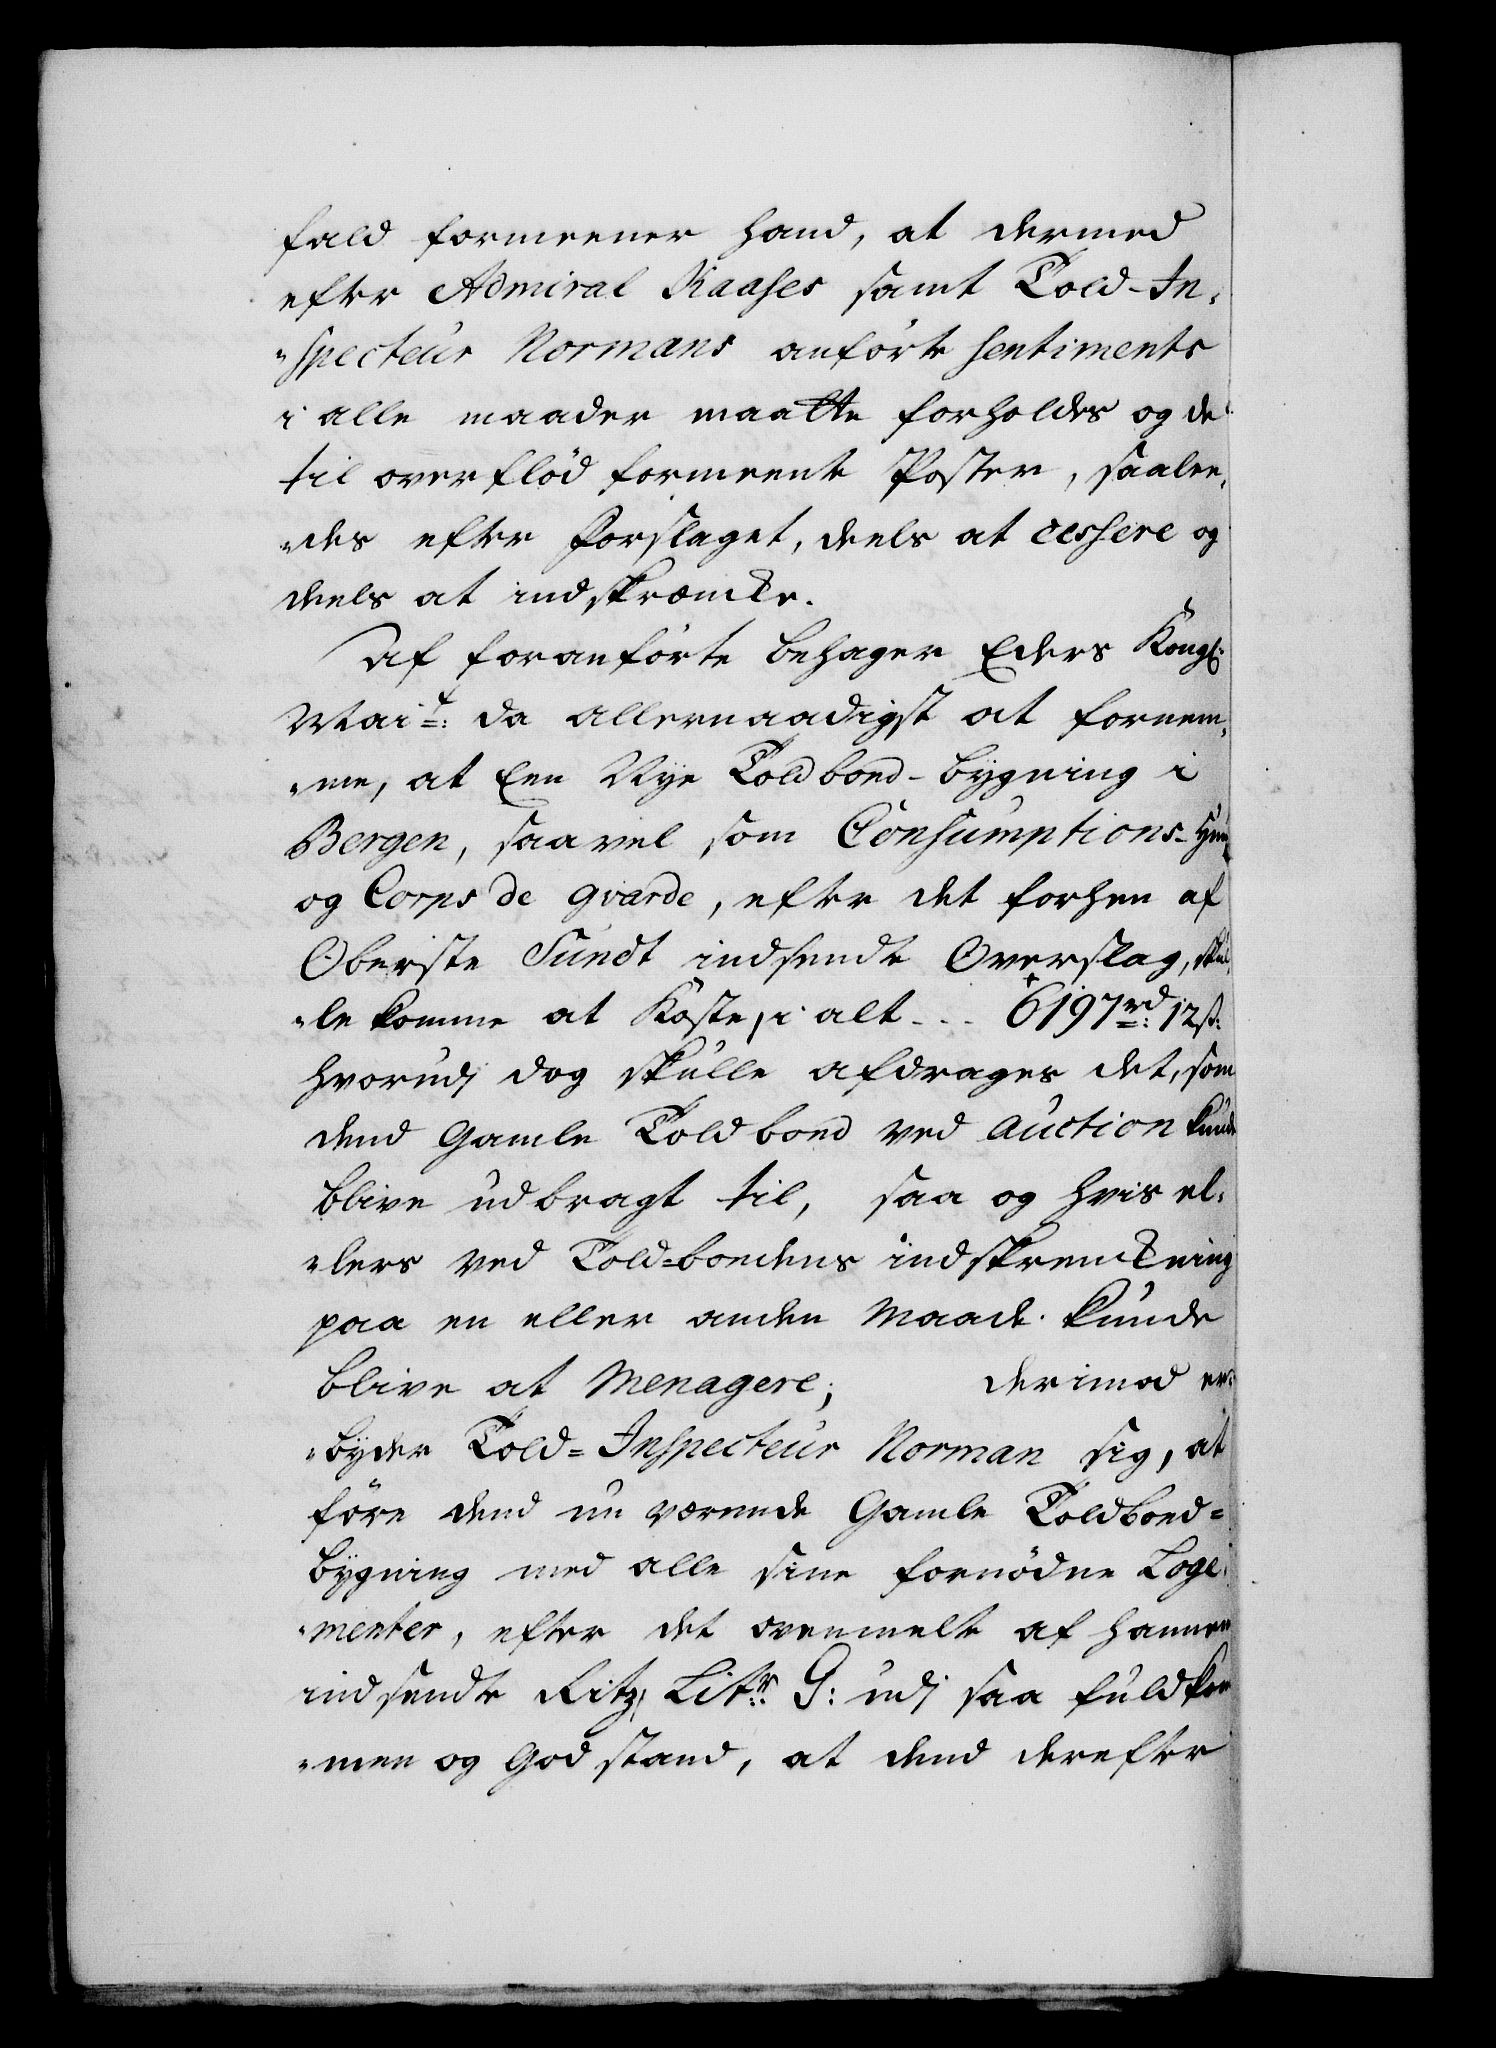 fald formeener hand, at dermed
efter Admiral Kaases samt Told-In,
„specteur Normans anförte sentiments
i alle maader maatte forholdes og de
til overflöd formeente Poster, saalee,
„des efter forslaget, deels at cessere og
deels at indskræncke.
Af foranförte behager Eders Kongl:
Mait: da allernaadigst at fornem,
„me, at Een Nye Toldboed-bygning i
Bergen, saavel som Consumptions-Huus
og Corps de gvarde, efter det forhen af
Oberste Sundt indsendte Overslag, skul,
„le komme at Koste, i alt - - - 6197rd: 12s:
hvorudj dog skulle afdrages det, som
dend Gamle Toldboed ved Auction kunde
blive udbragt til, saa og hvis el,
„lers ved Told-boedens indskrenckning
paa en eller anden Maade kunde
blive at Menagere; derimod er:
„byder Told=Inspecteur Norman sig, at
före dend nu værende Gamle Toldboed=
bygning med alle sine fornödne Loge,
„menter, efter det ovenmelte af hannem
indsendte Ritz, Litr: G: udj saa fuldkom
„men og God stand, at dend derefter